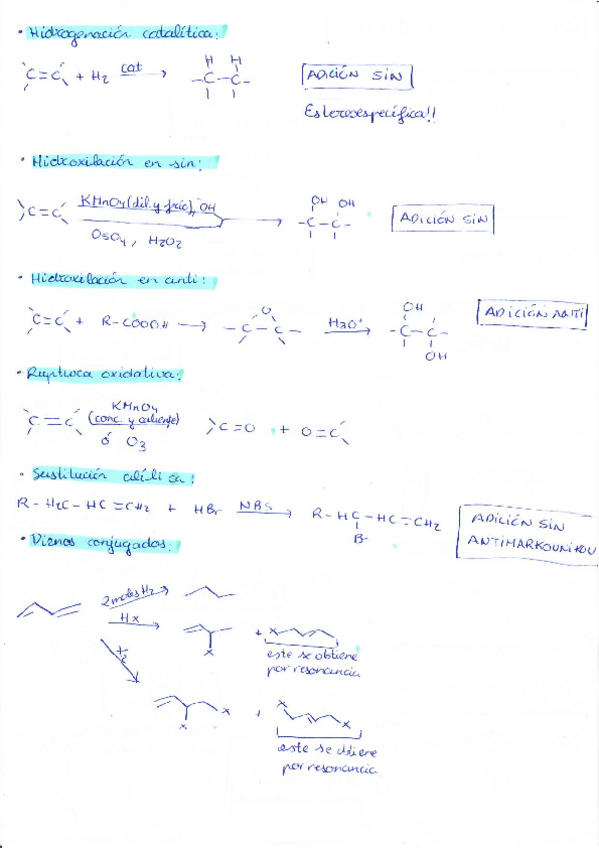 · Hidrogenación catalítica:
C=C + H2 cat → H H -C-C-
ADICIÓN SIN
Estereoespecífica!!
· Hidroxilación en sin:
C=C KMnO4 (dil. y frío), OH → OH OH -C-C-
OsO4, H2O2
ADICIÓN SIN
· Hidroxilación en anti:
C=C + R-COOH → O -C-C- H3O+ → OH -C-C- OH
ADICIÓN ANTI
· Ruptura oxidativa:
C=C KMnO4 (conc. y caliente) ó O3 C=O + O=C
· Sustitución alílica:
R-H2C-HC=CH2 + HBr NBS → R-HC-HC=CH2
Br
ADICIÓN SIN
ANTIMARKOUNIKOU
· Dienos conjugados:
2moles H2
HX
X + X
este se obtiene
por resonancia
X2
X X + X X
este se obtiene
por resonancia